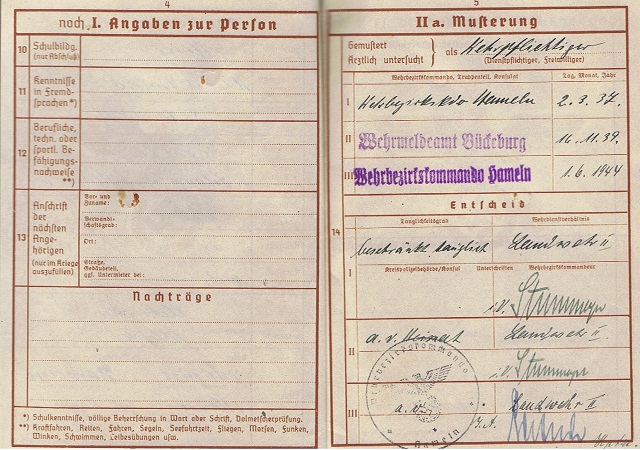 4
noch I. Angaben zur Person
10 Schulbildg.
(nur Abschluß)
11 Kenntnisse
in Fremd-
sprachen *)
12 Berufliche,
techn. oder
sportl. Be-
fähigungs-
nachweise
**)
13 Anschrift
der
nächsten
Ange-
hörigen
(nur im Kriege
auszufüllen)
Vor- und
Zuname:
Verwandt-
schaftsgrad:
Ort:
Straße,
Gebäudeteil,
ggf. Untermieter bei:
Nachträge
*) Schulkenntnisse, völlige Beherrschung in Wort oder Schrift, Dolmetscherprüfung.
**) Kraftfahren, Reiten, Fahren, Segeln, Seefahrtzeit, Fliegen, Morsen, Funken,
Winken, Schwimmen, Leibesübungen usw.
5
IIa. Musterung
Gemustert
Ärztlich untersucht } als Wehrpflichtiger
(Dienstpflichtiger, Freiwilliger)
Wehrbezirkskommando, Truppenteil, Konsulat Tag, Monat, Jahr
I Wehrbezirkskdo Hameln 2.3.37.
II Wehrmeldeamt Bückeburg 16.11.39.
III Wehrbezirkskommando Hameln 1.6.1944
Entscheid
14
Tauglichkeitsgrad Wehrdienstverhältnis
I beschränkt tauglich Landwehr II
Kreispolizeibehörde/Konsul Unterschriften Wehrbezirkskommandeur
i.V. Stummeyer
II a.v. Heimat Landwehr II
i.V. Stummeyer
III a.v. Landwehr II
I.A.
Wehrbezirkskommando
Hameln